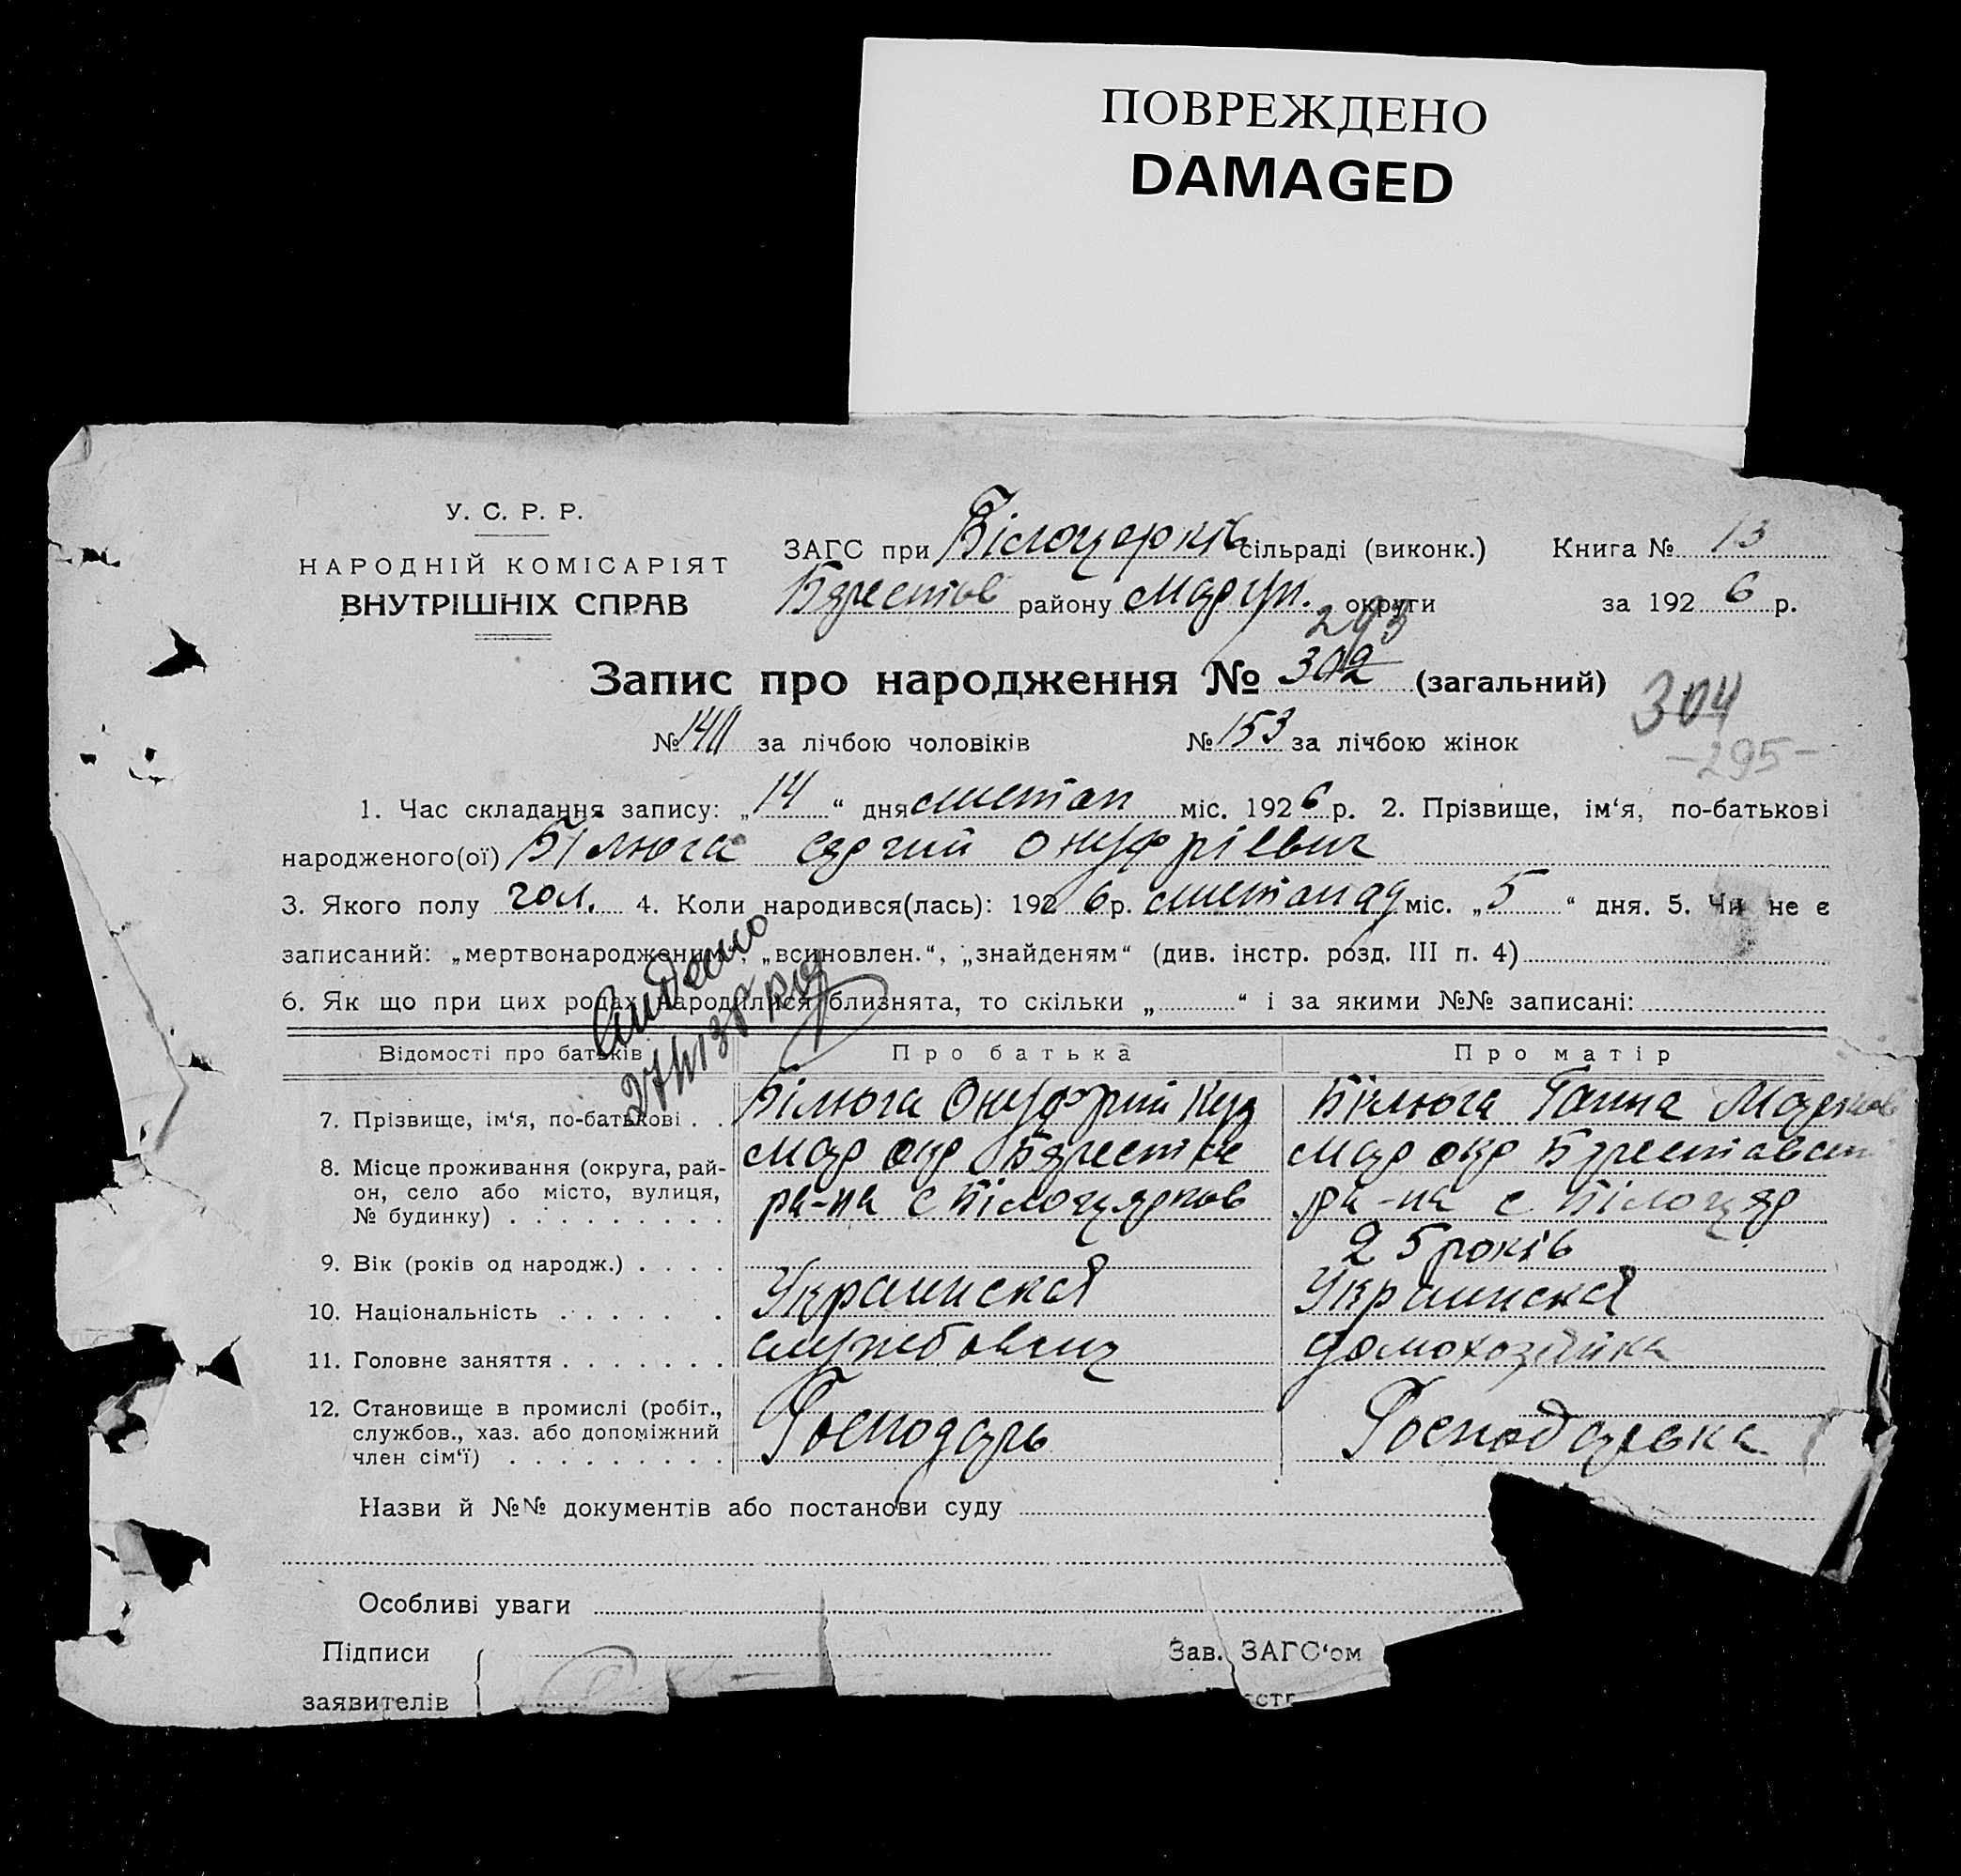 ПОВРЕЖДЕНО
DAMAGED
У. С. Р. Р.
НАРОДНІЙ КОМІСАРІЯТ
ВНУТРІШНІХ СПРАВ
ЗАГС при Білоцерків сільраді (виконк.) Книга № 13
району Марiуп. округи за 1926 р.
293
Запис про народження № 302 (загальний)
304
№ за лічбою чоловіків № 153 за лічбою жінок
-295-
1. Час складання запису: „14“ дня листоп міс. 1926 р. 2. Прізвище, ім‘я, по-батькові
народженого(ої) Білюга Сергий Онуфріевич
3. Якого полу чол. 4. Коли народився(лась): 1926 р. листопад міс. „5“ дня. 5. Чи не є
записаний: „мертвонародженим“, „всиновлен.“, „знайденям“ (див. інстр. розд. III п. 4)
6. Як що при цих родах народилися близнята, то скільки „ “ і за якими №№ записані:
Відомості про батьків Про батька Про матір
7. Прізвище, ім‘я, по-батькові . . Білюга Онуфрий Куз Білюга Ганна
8. Місце проживання (округа, рай- Мар окр Мар окр
он, село або місто, вулиця, ра-на с Білоцерков ра-на с Білоцер
№ будинку) . . . . . . . . .
9. Вік (років од народж.) . . . . 25 років
10. Національність . . . . . . Украинская Украинская
11. Головне заняття . . . . . . . домохозяйка
12. Становище в промислі (робіт., Господарь Господарька
службов., хаз. або допоміжний
член сім‘ї) . . . . . . . . .
Назви й №№ документів або постанови суду
Особливі уваги
Підписи Зав. ЗАГС‘ом
заявителів